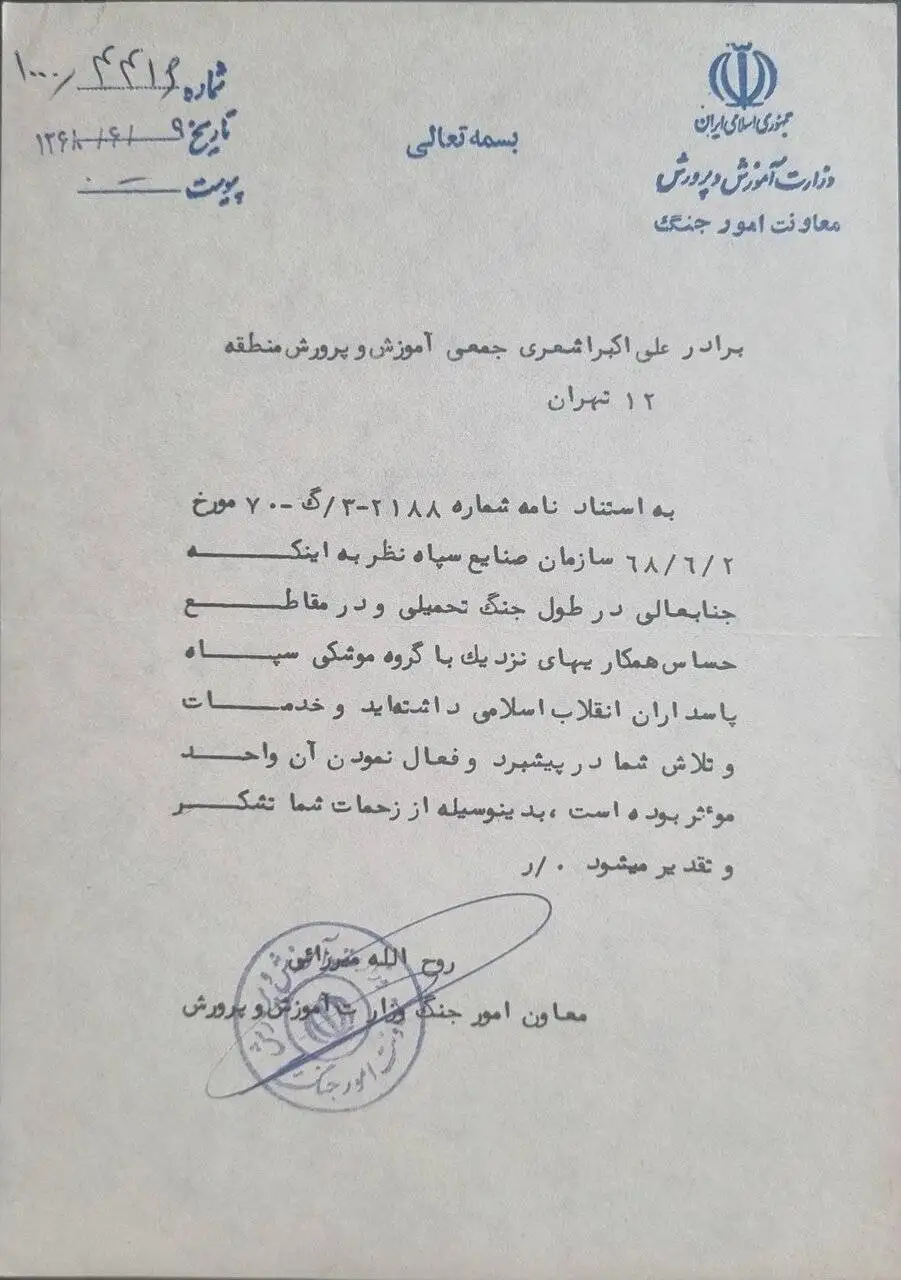 جمهوری اسلامی ایران
وزارت آموزش و پرورش
معاونت امور جنگ
بسمه تعالی
شماره
تاریخ ۱۳۶۸/۶/۹
پیوست
برادر علی اکبر اشعری جمعی آموزش و پرورش منطقه
۱۲ تهران
به استناد نامه شماره ۲۱۸۸-۳/گ-۷۰ مورخ
۶۸/۶/۲ سازمان صنایع سپاه نظر به اینکه
جنابعالی در طول جنگ تحمیلی و در مقاطع
حساس همکاریهای نزدیك با گروه موشکی سپاه
پاسداران انقلاب اسلامی داشته‌اید و خدمات
و تلاش شما در پیشبرد و فعال نمودن آن واحد
موٴثر بوده است ، بدینوسیله از زحمات شما تشکر
و تقدیر میشود ۰/ر
روح الله
معاون امور جنگ وزارت آموزش و پرورش
معاونت امور جنگ